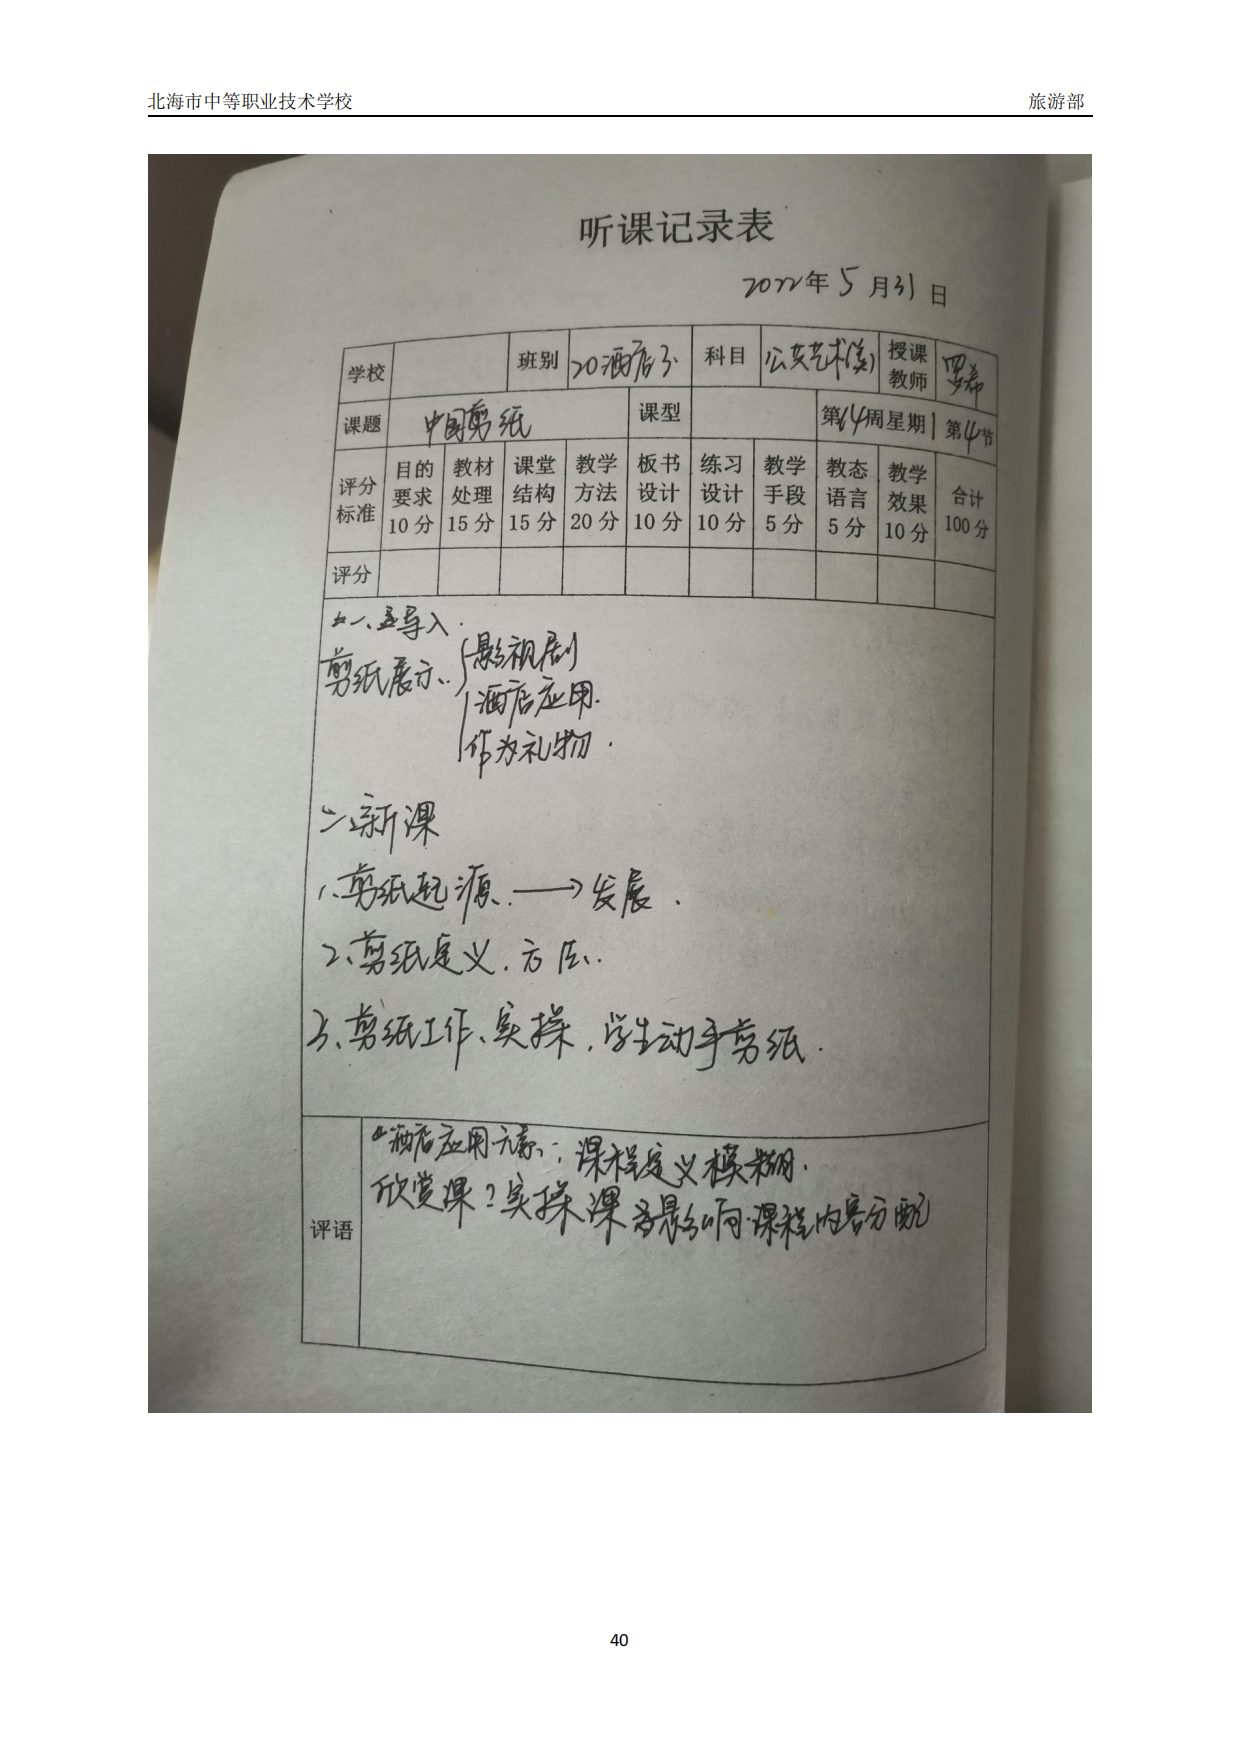 北海市中等职业技术学校 旅游部
听课记录表
2022年5月31日
学校 班别 20酒店3 科目 公共艺术(美) 授课教师 罗希
课题 中国剪纸 课型 第14周星期1第4节
评分标准 目的要求10分 教材处理15分 课堂结构15分 教学方法20分 板书设计10分 练习设计10分 教学手段5分 教态语言5分 教学效果10分 合计100分
评分
一、导入.
剪纸展示. 影视剧
酒店应用.
作为礼物.
二、新课
1、剪纸起源. → 发展.
2、剪纸定义.方法.
3、剪纸工作、实操.学生动手剪纸.
评语
酒店应用元素.;课程定义模糊.
欣赏课?实操课 影响.课程内容分配
40